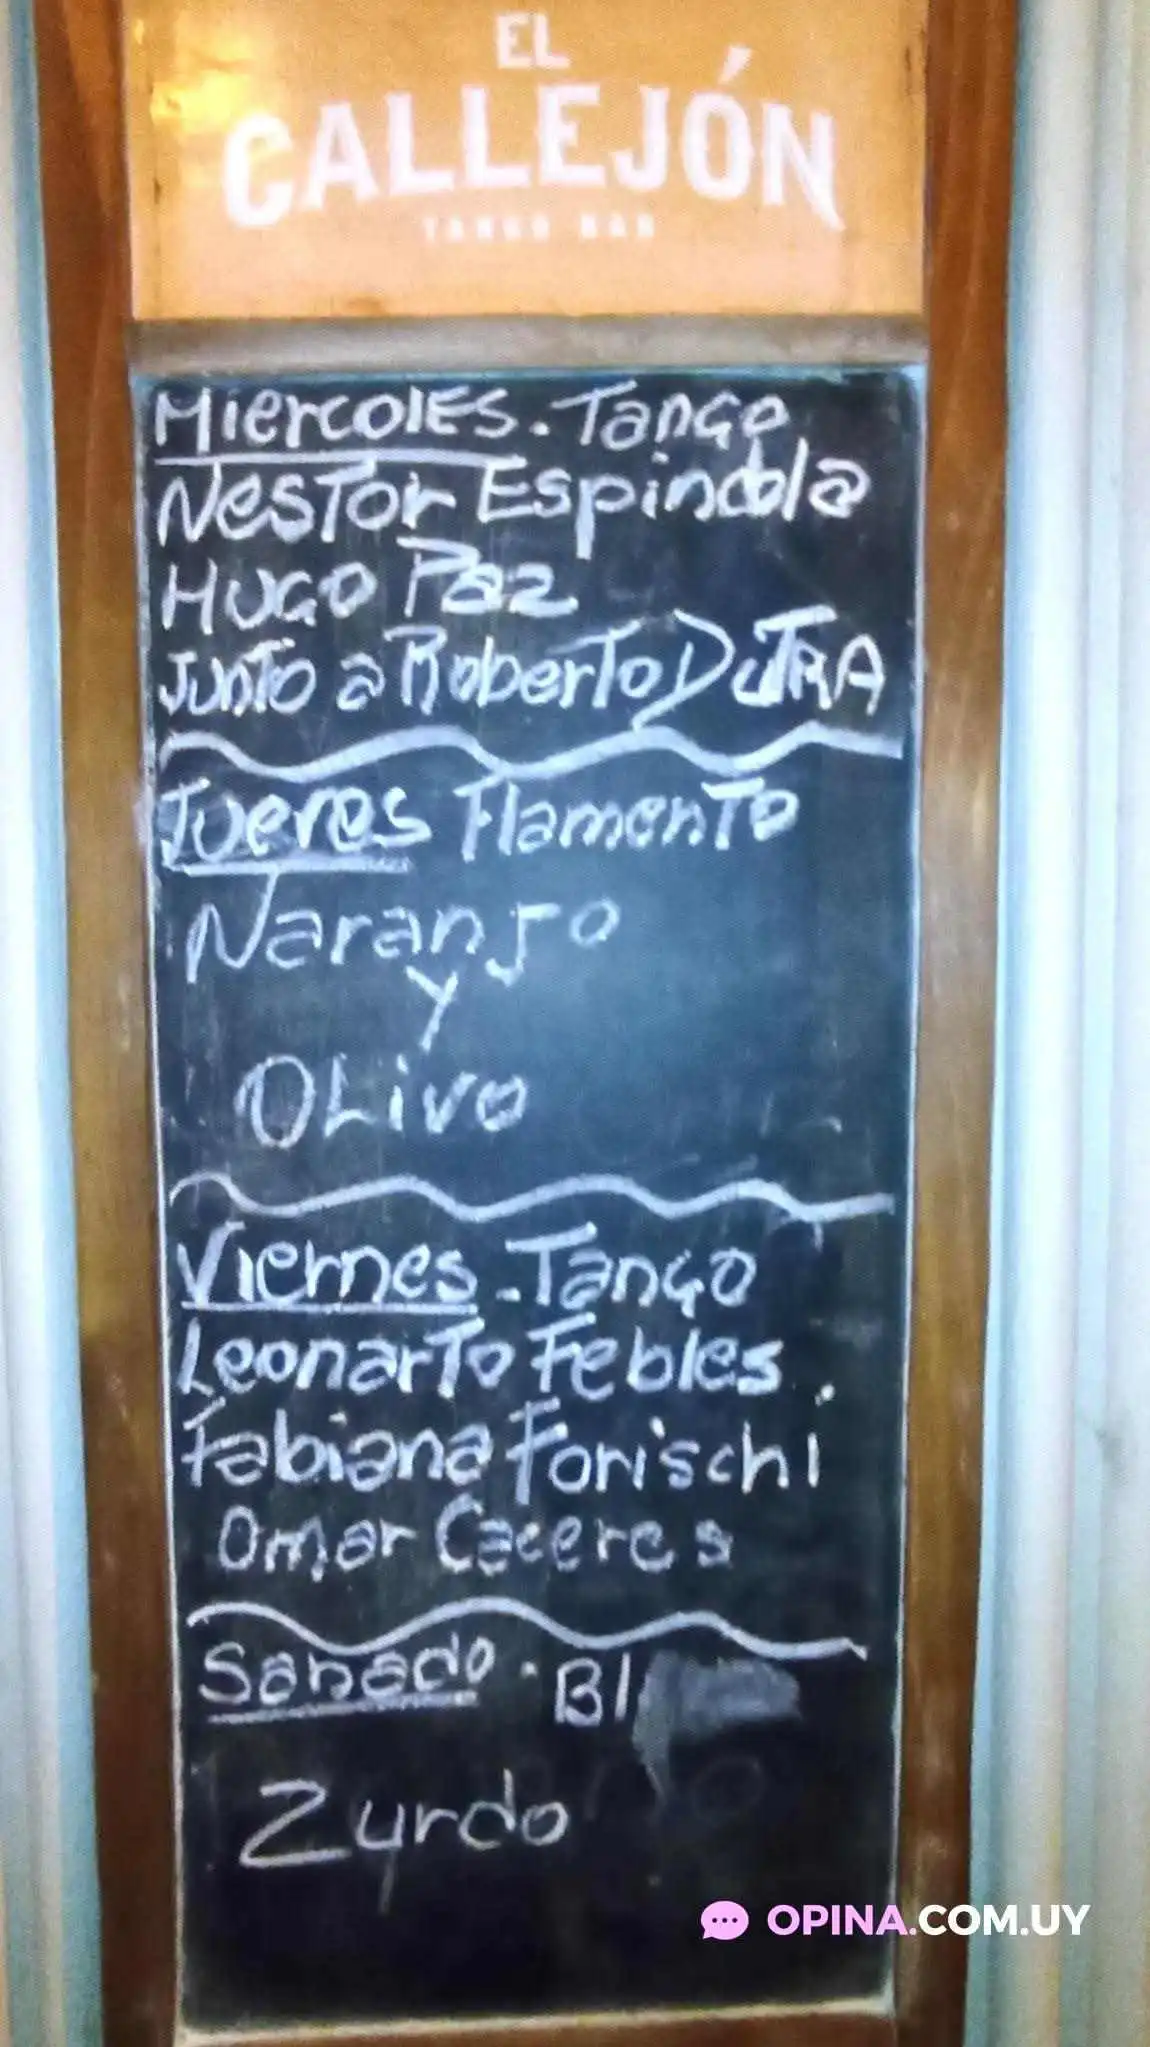 EL
CALLEJÓN
TANGO BAR
Miercoles. Tango
Nestor Espindola
Hugo Paz
Junto a Roberto DUTRA
Jueves Flamento
Naranjo
y
OLivo
Viernes - Tango
Leonarto Febles
Fabiana Forischi
Omar Caceres
Sabado. BI
Zurdo
OPINA.COM.UY